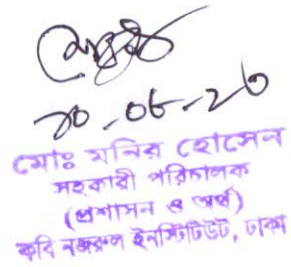 ২০-০৮-২৩
মোঃ মনির হোসেন
সহকারী পরিচালক
(প্রশাসন ও অর্থ)
কবি নজরুল ইনস্টিটিউট, ঢাকা